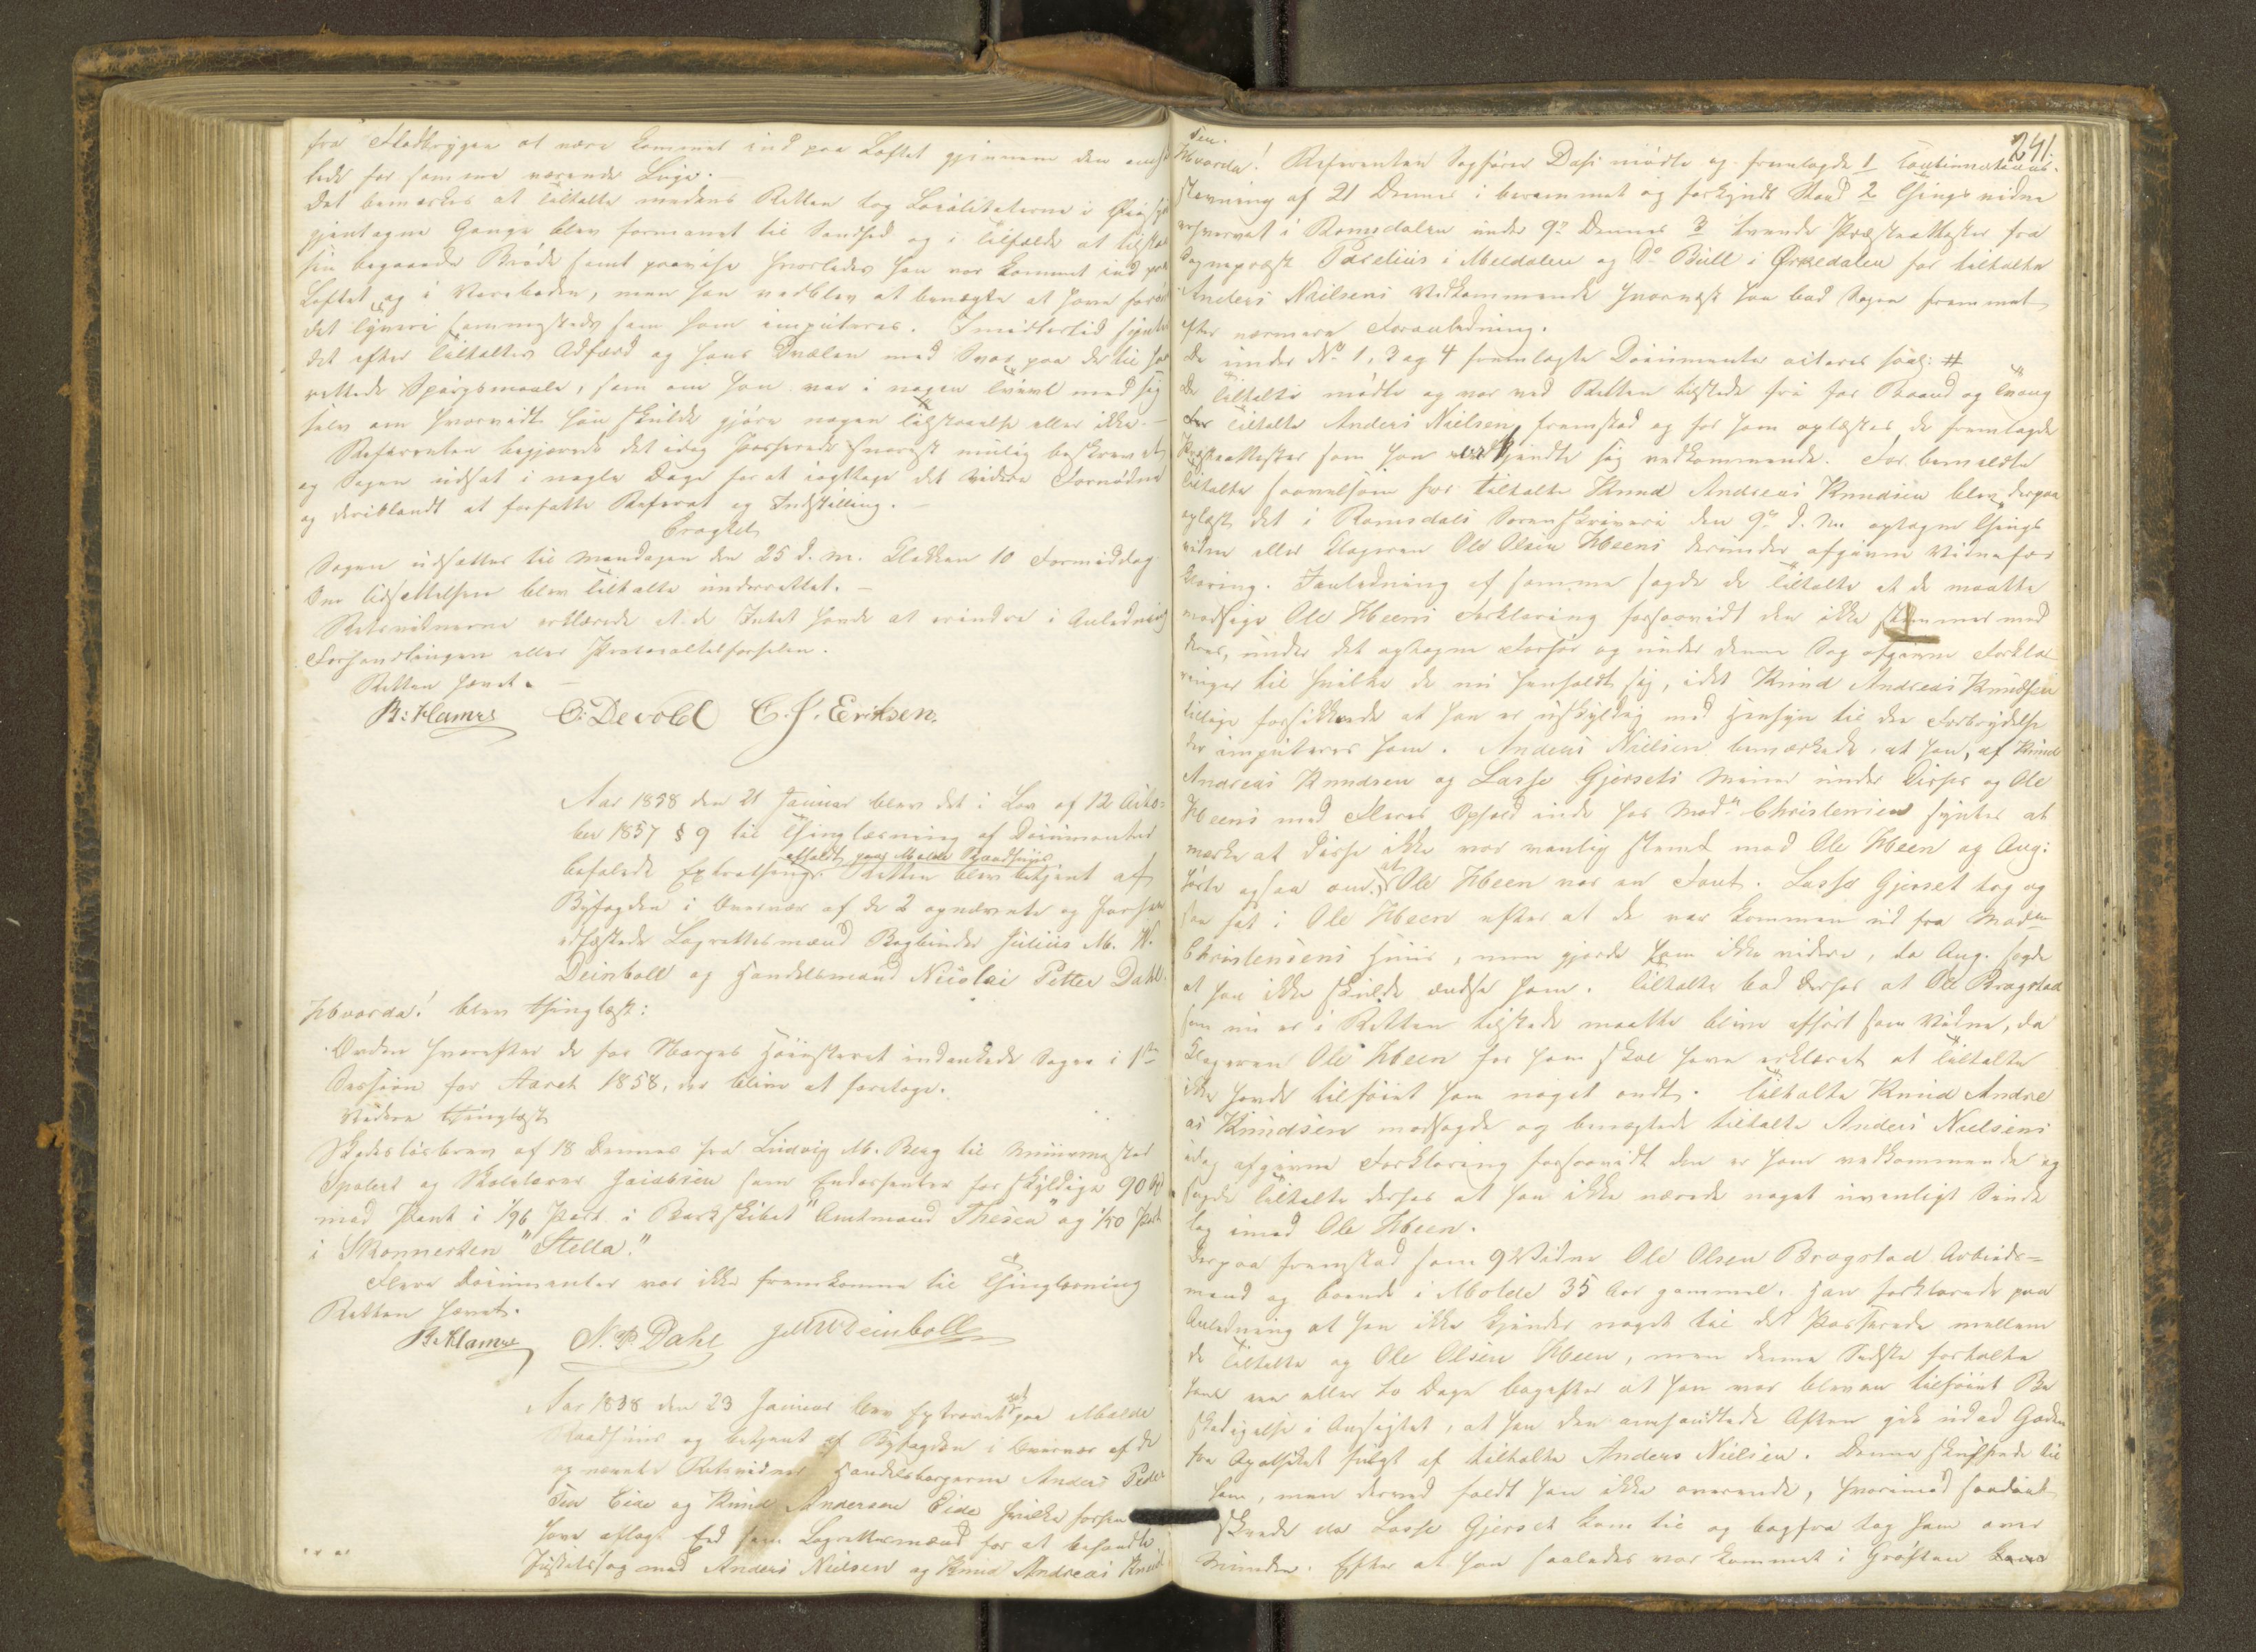 fra Stadbryggen at være kommet ind paa Loftet gjennem den anst
leds for samme værende Luge.—
Det bemærkes at Tiltalte medens Retten tog Localiteterne i Øiesyn
gjentagne Gange blev formanet til Sandhed og i Tilfælde at tilstaae
sin begaaede Brøde samt paavise hvorledes han var kommet ind paa
Loftet og i Kornboden, men han vedblev at benægte at have forøvet
det Tyveri sammesteds som ham imputeres. Imidlertid syntes
det efter Tiltaltes Adfærd og hans Dvælen med Svar paa de til ham
rettede Spørgsmaale, som om han var i nogen Tvivl med sig
selv om hvorvidt han skulde gjøre nogen Tilstaaelse eller ikke.—
Referenten begjærede det idag Passerede snarest mulig beskrevet
og Sagen udsat i nogle Dage for at iagttage det videre Fornødne
og deriblandt at forfatte Referat og Indstilling.—
Eragtet
Sagen udsættes til Mandagen den 25 d. M. Klokken 10 Formiddag
Om Udsættelsen blev Tiltalte underrettet.—
Retsvidnerne erklærede at de Intet havde at erindre i Anledning
Forhandlingen eller Protocoltilførselen.
Retten hævet.—
B: Hames O: Devold C. J. Eriksen.
Aar 1858 den 21 Januar blev det i Lov af 12 Octo-
ber 1857 § 9 til Thinglæsning af Documenter
befalede Extrathing afholdt paa Molde Raadhuus Retten blev betjent af
Byfogden i Overvær af de 2 opnævnte og forhen
edfæstede Lagrettesmænd Bogbinder Julius M. W.
Deinboll og Handelsmand Nicolai Petter Dahl.
Hvorda! blev thinglæst:
Orden hvorefter de for Norges Høiesteret indankede Sager i 1ste
Session for Aaret 1858, vil blive at foretage.
Videre thinglæst
Skadesløsbrev af 18 Dennes fra Ludvig M. Berg til Muurmester
og Skolelærer Jacobsen som Endossenter for skyldige 90 Spd
med Pant i 1/96 Part i Barkskibet "Amtmand Thesen" og 1/50 Part
i Skonnerten "Stella."
Flere Documenter var ikke fremkomne til Thinglæsning
Retten hævet.
B: Hames N. P. Dahl J M W Deinboll
Aar 1858 den 23 Januar blev Extraret sat paa Molde
Raadhuus og betjent af Byfogden i Overvær af de
opnævnte Retsvidner Handelsborgerne Anders Peder
sen Eide og Knud Andersen Eide hvilke forhen
have aflagt Eed som Lagrettesmænd for at behandle
Justitssag mod Anders Nielsen og Knud Andreas Knud
241.
sen.
Hvorda! Referenten Sagfører Dahl mødte og fremlagde 1 Continuations-
stævning af 21 Dennes i berammet og forkyndt Stand 2 Thingsvidne
erhvervet i Romsdalen under 9de Dennes 3 tvende Præsteattester fra
Sognepræst Parelius i Meldalen og Do Bull i Ørkedalen for tiltalte
Anders Nielsens Vedkommende hvornæst han bad Sagen fremmet
efter nærmere Foranledning.
De under No 1, 3 og 4 fremlagte Documenter acteres saal: #
De Tiltalte mødte og var ved Retten tilstede frie for Baand og Tvang
For Tiltalte Anders Nielsen, fremstod og for ham oplæstes de fremlagde
Præsteattester som han vedkjendte sig vedkommende. For bemeldte
Tiltalte saavelsom for Tiltalte Knud Andreas Knudsen blev derpaa
oplæst det i Romsdals Sorenskriveri den 9de d. M. optagne Things
vidne eller Klageren Ole Olsen Heens derunder afgivne Vidnefor
klaring. I Anledning af samme sagde de Tiltalte at de maatte
modsige Ole Heens Forklaring forsaavidt den ikke stemmer med
deres, under det optagne Forhør og under denne Sag afgivne Forkla
ringer til hvilke de nu henholdt sig, idet Knud Andreas Knudsen
tillige forsikkrede at han er uskyldig med Hensyn til den Forbrydelse
der imputeres ham. Anders Nielsen bemærkede, at han, af Knud
Andreas Knudsen og Lasse Gjersets Miner under Disses og Ole
Heens med Fleres Ophold inde hos Madm Christensen syntes at
mærke at disse ikke var venlig stemt mod Ole Heen og Ang:
hørte ogsaa om, at Ole Heen var en Fant. Lasse Gjerset tog og
saa fat i Ole Heen efter at de var kommen ud fra Madm
Christensens Huus, men gjorde ham ikke videre, da Ang. sagde
at han ikke skulde ændse ham. Tiltalte bad derhos at Ole Bragstad
som nu er i Retten tilstede maatte blive afhørt som Vidne, da
Klageren Ole Heen for ham skal have erklæret at Tiltalte
ikke havde tilføiet ham noget ondt. Tiltalte Knud Andre
as Knudsen modsagde og benægtede tiltalte Anders Nielsens
idag afgivne Forklaring forsaavidt den er ham vedkommende og
sagde Tiltalte derhos at han ikke nærede noget uvenligt Sinde
lag imod Ole Heen.
Derpaa fremstod som 9 Vidne Ole Olsen Bragstad Arbeids-
mand og boende i Molde 35 Aar gammel. Han forklarede paa
Anledning at han ikke kjender noget til det Passerede mellem
de Tiltalte og Ole Olsen Heen, men denne Sidste fortalte
ham een eller to Dage bagefter at han var bleven tilføiet Be
skadigelse i Ansigtet, at han den omhandlede Aften gik ud ad Gaden
fra Apotheket fulgt af tiltalte Anders Nielsen. Denne skuffede til
ham, men derved faldt han ikke overende, hvorimod saadant
skeede da Lasse Gjerset kom til og bagfra tog ham over
Munden. Efter at han saaledes var kommet i Grøften